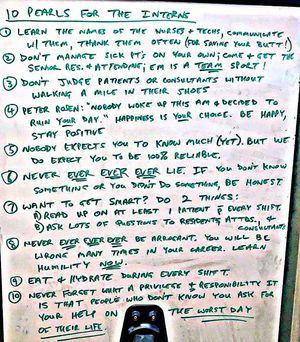 10 PEARLS FOR THE INTERNS
① LEARN THE NAMES OF THE NURSES + TECHS, COMMUNICATE
W/ THEM, THANK THEM OFTEN (FOR SAVING YOUR BUTT!)
② DON'T MANAGE SICK PTS ON YOUR OWN; COME + GET THE
SENIOR RES. & ATTENDING; EM IS A TEAM SPORT!
③ DON'T JUDGE PATIENTS OR CONSULTANTS WITHOUT
WALKING A MILE IN THEIR SHOES
④ PETER ROSEN: "NOBODY WOKE UP THIS AM & DECIDED TO
RUIN YOUR DAY." HAPPINESS IS YOUR CHOICE. BE HAPPY,
STAY POSITIVE
⑤ NOBODY EXPECTS YOU TO KNOW MUCH (YET). BUT WE
DO EXPECT YOU TO BE 100% RELIABLE.
⑥ NEVER EVER EVER EVER LIE. IF YOU DON'T KNOW
SOMETHING OR YOU DIDN'T DO SOMETHING, BE HONEST
⑦ WANT TO GET SMART? DO 2 THINGS:
A) READ UP ON AT LEAST 1 PATIENT EVERY SHIFT
B) ASK LOTS OF QUESTIONS TO RESIDENTS, ATTDS., & CONSULTANTS
⑧ NEVER EVER EVER EVER BE ARROGANT. YOU WILL BE
WRONG MANY TIMES IN YOUR CAREER. LEARN
HUMILITY NOW.
⑨ EAT & HYDRATE DURING EVERY SHIFT.
⑩ NEVER FORGET WHAT A PRIVILEGE & RESPONSIBILITY IT
IS THAT PEOPLE WHO DON'T KNOW YOU ASK FOR
YOUR HELP ON THE WORST DAY
OF THEIR LIFE